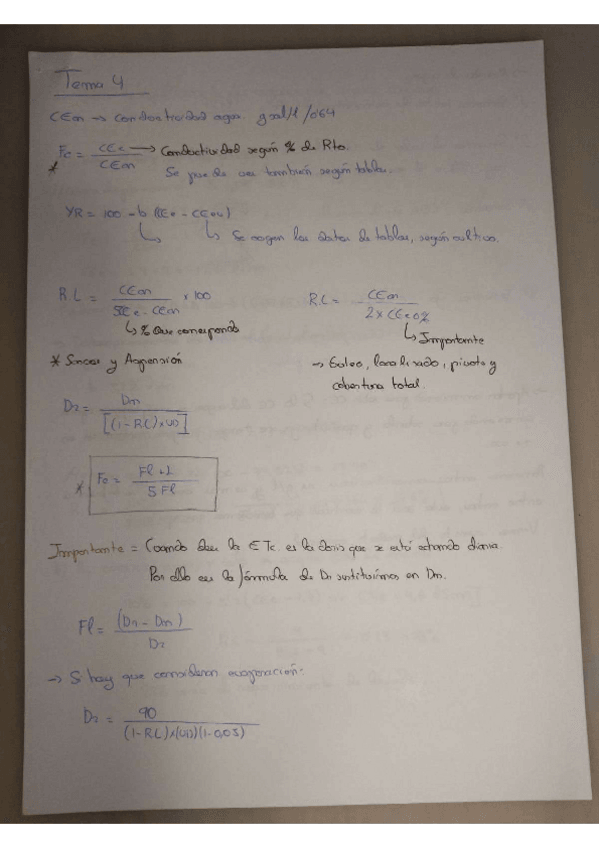 Tema 4
CEar → Conductividad agua. g sal/l /0'64
Fc = CEc → Conductividad según % de Rto.
CEar
* Se puede ver también según tabla.
YR = 100 - b (CEe - CEeu)
↳ ↳ Se cogen los datos de tablas, según cultivo.
R.L = CEar / 5CEe - CEar × 100
↳ % Que corresponda
R.L = CEar / 2 x CEe0%
↳ Importante
* Surcos y Aspersión
→ Goteo, localizado, pivote y
cobertura total.
Dr = Dn / [(1 - RL) x UD]
* Fc = Fl + 1 / 5 Fl
Importante = Cuando dan la ETc. es la dosis que se está echando diaria.
Por ello en la fórmula de Dr sustituimos en Dn.
Fl = (Dr - Dn) / Dr
→ Si hay que considerar evaporación:
Dr = 90 / (1 - RL) x (UD) (1 - 0.05)